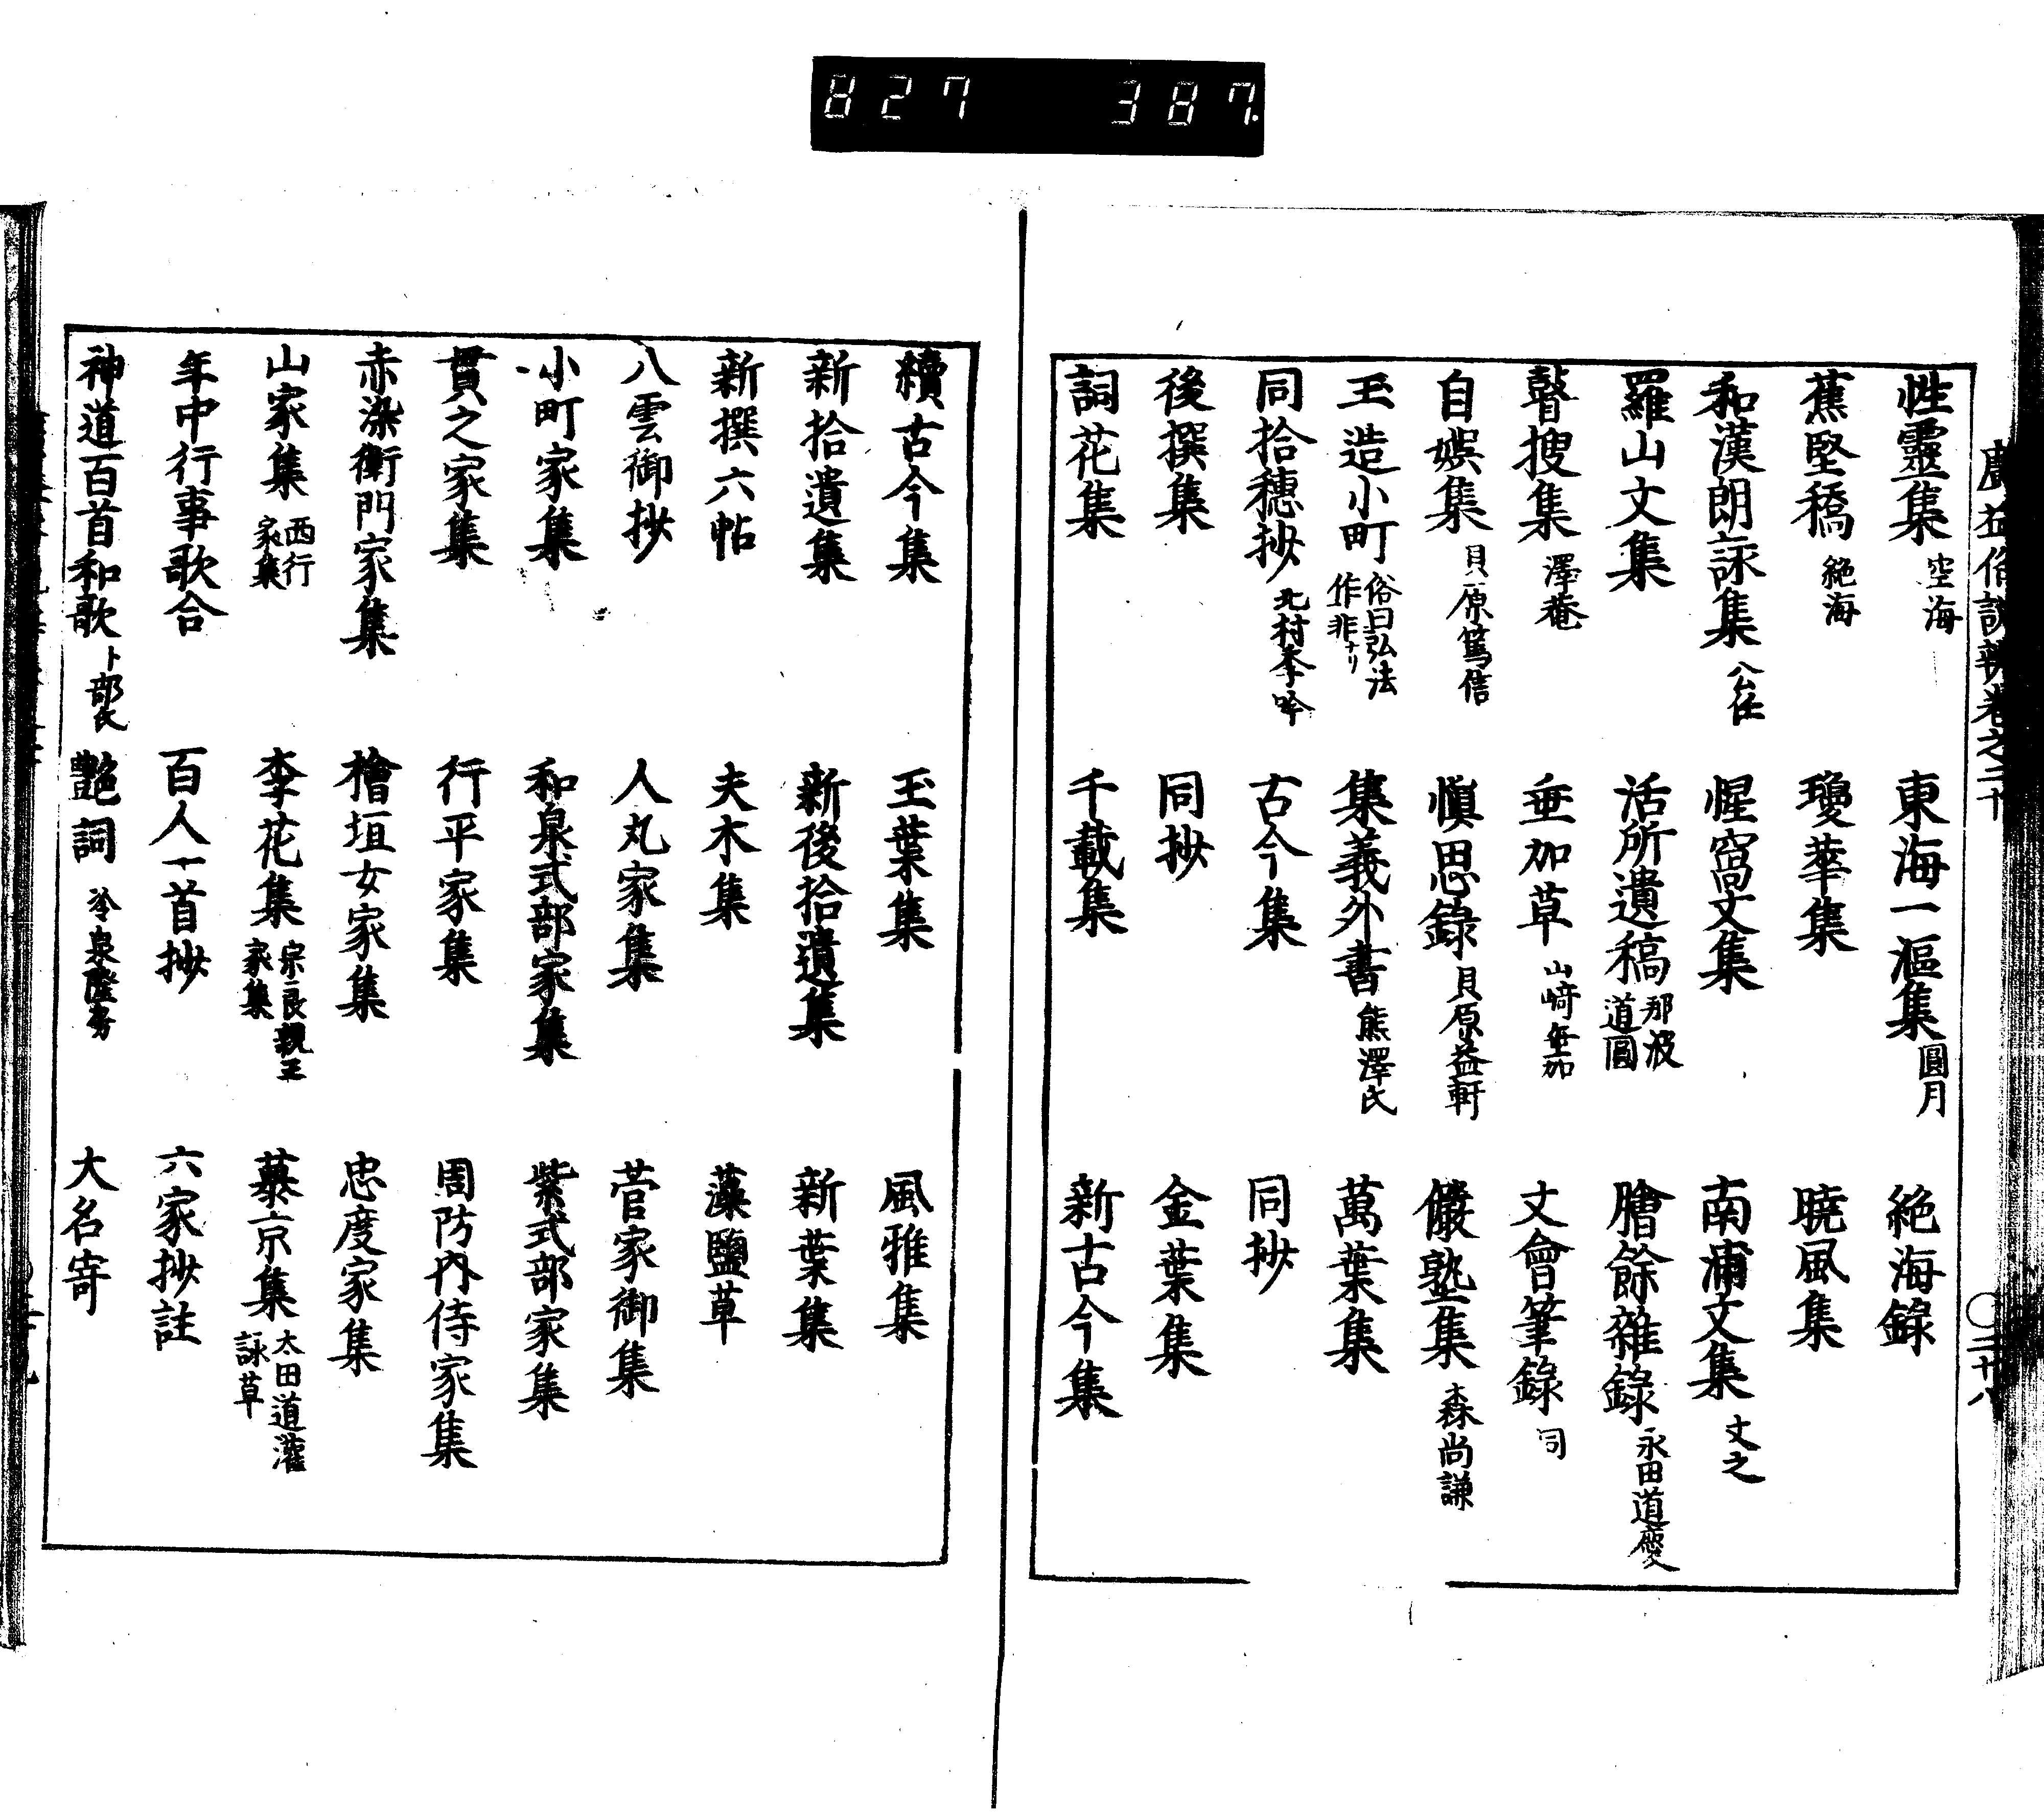 827 387.
廣益俗説辨卷之二十
〇二十八
性靈集 空海 東海一漚集 圓月 絶海錄
蕉堅稿 絶海 瓊華集 曉風集
和漢朗詠集 公任 惺窩文集 南浦文集 文之
羅山文集 活所遺稿 那波道圓 膾餘雜錄 永田道慶
瞽搜集 澤菴 垂加草 山﨑垂加 文會筆錄 同
自娯集 貝原篤信 愼思錄 貝原益軒 儼塾集 森尚謙
玉造小町 俗曰弘法作非ナリ 集義外書 熊澤氏 萬葉集
同拾穗抄 北村季吟 古今集 同抄
後撰集 同抄 金葉集
詞花集 千載集 新古今集
續古今集 玉葉集 風雅集
新拾遺集 新後拾遺集 新葉集
新撰六帖 夫木集 藻鹽草
八雲御抄 人丸家集 菅家御集
小町家集 和泉式部家集 紫式部家集
貫之家集 行平家集 周防内侍家集
赤染衛門家集 檜垣女家集 忠度家集
山家集 西行家集 李花集 宗良親王家集 慕京集 太田道灌詠草
年中行事歌合 百人一首抄 六家抄註
神道百首和歌 卜部氏 艶詞 冷泉隆房 大名寄